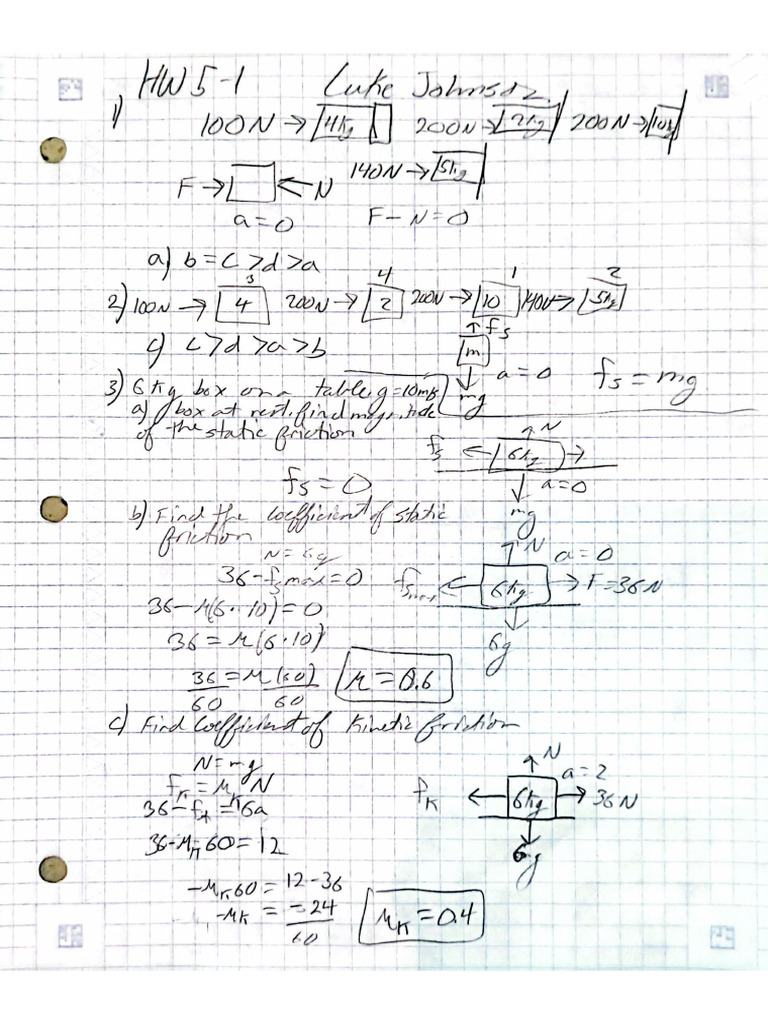 HW 5-1 Luke Johnson
1)
100N → 4kg 200N → 2kg 200N → 10kg
140N → 5kg
F → ← N
a = 0 F - N = 0
a) b = c > d > a
3 4 1 2
2) 100N → 4 200N → 2 200N → 10 140N → 5kg
↑ fs
c) c > d > a > b
m a = 0 fs = mg
mg
3) 6kg box on a table g = 10m/s
a) box at rest. find magnitude
of the static friction
N
fs ← 6kg →
a = 0
mg
fs = 0
b) Find the coefficient of static
friction
N = 6g
N a = 0
36 - fs max = 0
fs max ← 6kg → F = 36N
6g
36 - μ(6 · 10) = 0
36 = μ(6 · 10)
36 = μ(60)
60 60
μ = 0.6
c) Find Coefficient of Kinetic friction
N = mg
fK = μK N
36 - fK = 6a
N a = 2
fK ← 6kg → 36N
6g
36 - μK 60 = 12
-μK 60 = 12 - 36
-μK = -24
60
μK = 0.4